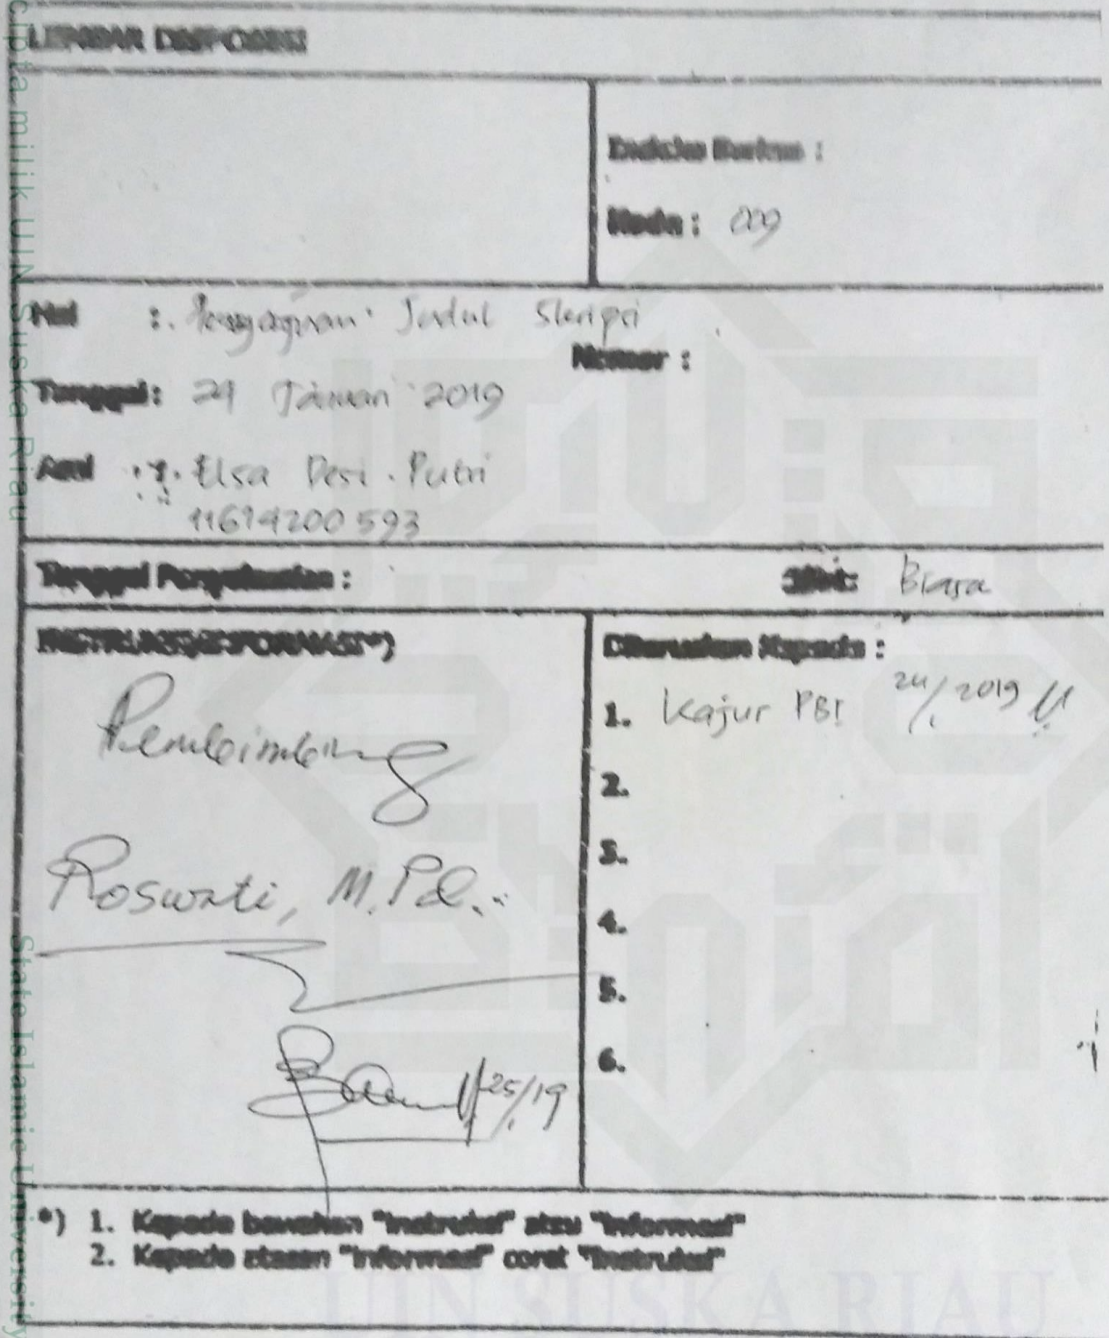 LEMBAR DISPOSISI
Indeks Berkas :
Kode : 009
Hal : Pengajuan Judul Skripsi
Nomor :
Tanggal : 24 Januari 2019
Asal : Elsa Desi Putri
11614200593
Tanggal Penyelesaian :
Sifat: Biasa
INSTRUKSI/INFORMASI*)
Pembimbing
Roswati, M.Pd.
25/19
Diteruskan Kepada :
1. Kajur PBI 24/1 2019
2.
3.
4.
5.
6.
*) 1. Kepada bawahan "Instruksi" atau "Informasi"
2. Kepada atasan "Informasi" coret "Instruksi"
cipta milik UIN Suska Riau
State Islamic University
UIN SUSKA RIAU